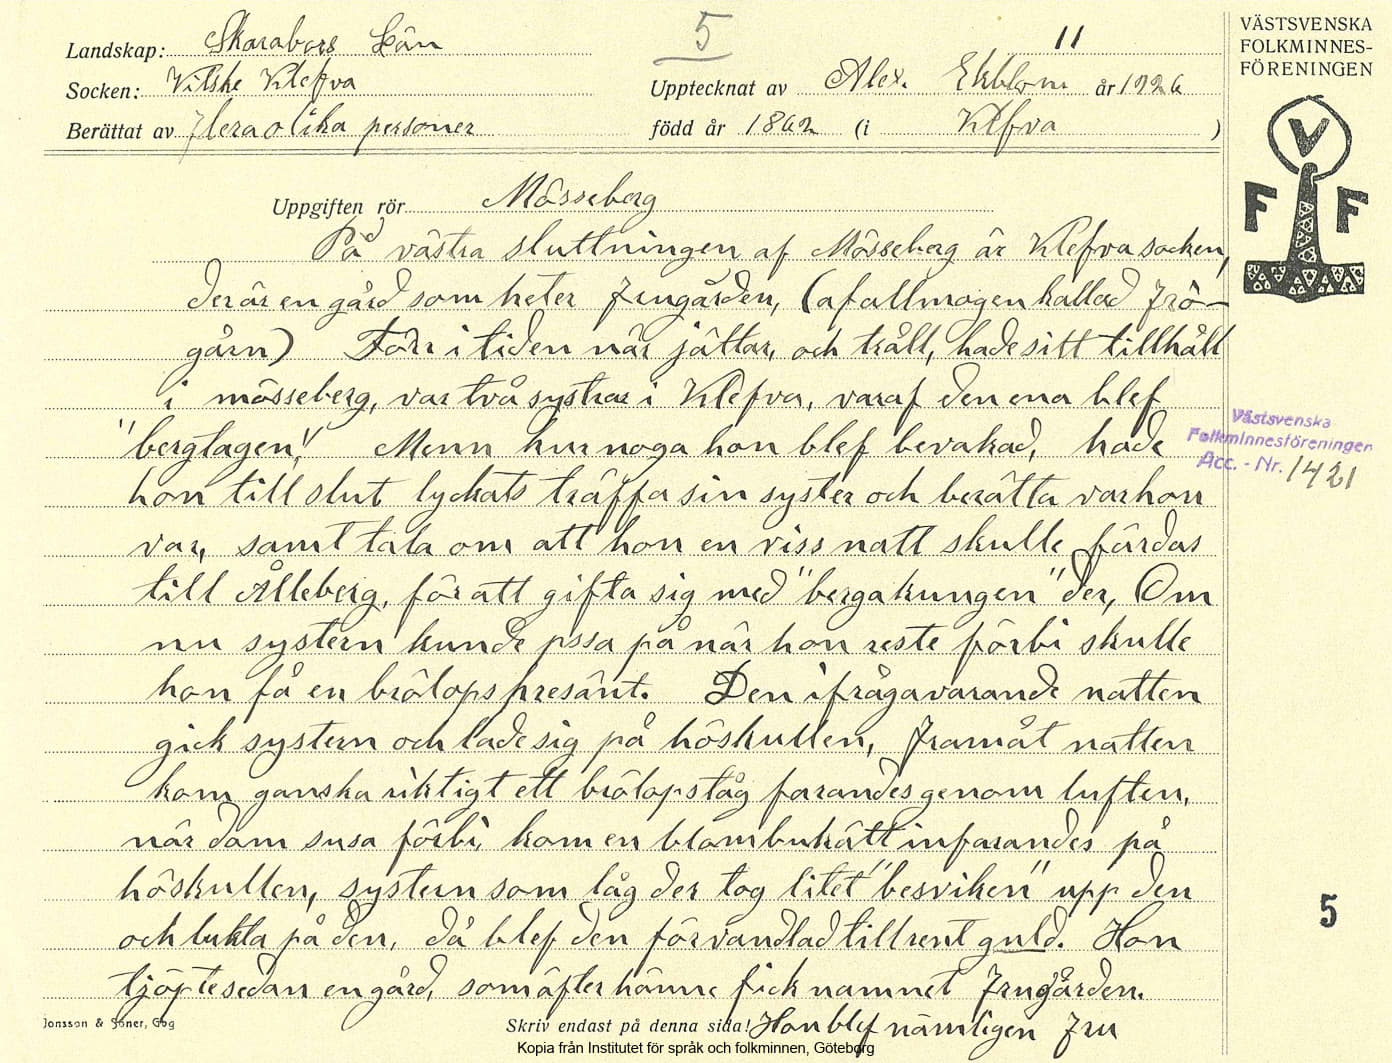 Landskap: Skarabors Län
5
11
VÄSTSVENSKA
FOLKMINNES-
FÖRENINGEN
Socken: Vilske Klefva
Upptecknat av Alex. Ekblom år 1926
Berättat av flera olika personer
född år 1862 (i Klefva )
V
F F
Uppgiften rör Mösseberg
På västra sluttningen af Mösseberg är Klefva socken,
der är en gård som heter Frugården, (af allmogen kallad Frö-
gårn) Förr i tiden när jättar, och tråll, hade sitt tillhåll
i mösseberg, var två systrar i Klefva, varaf den ena blef
"bergtagen". Menn hur noga hon blef bevakad, hade
hon till slut lyckats träffa sin syster och berätta var hon
var, samt tala om att hon en viss natt skulle färdas
till Ålleberg, för att gifta sig med "bergakungen" der, Om
nu systern kunde pssa på när hon reste förbi skulle
hon få en brölopspresänt. Den ifrågavarande natten
gick systern och lade sig på höskullen, Framåt natten
kom ganska riktigt ett brölopståg farandes genom luften,
när dom susa förbi, kom en blombukätt infarandes på
höskullen, systern som låg der tog litet "besviken" upp den
och lukta på den, då blef den förvandlad till rent guld. Hon
tjöpte sedan en gård, som äfter hänne fick namnet Frugården.
Västsvenska
Folkminnesföreningen
Acc. - Nr. 1421
5
Jonsson & Soner, Gbg
Skriv endast på denna sida! Hon blef nämligen Fru
Kopia från Institutet för språk och folkminnen, Göteborg